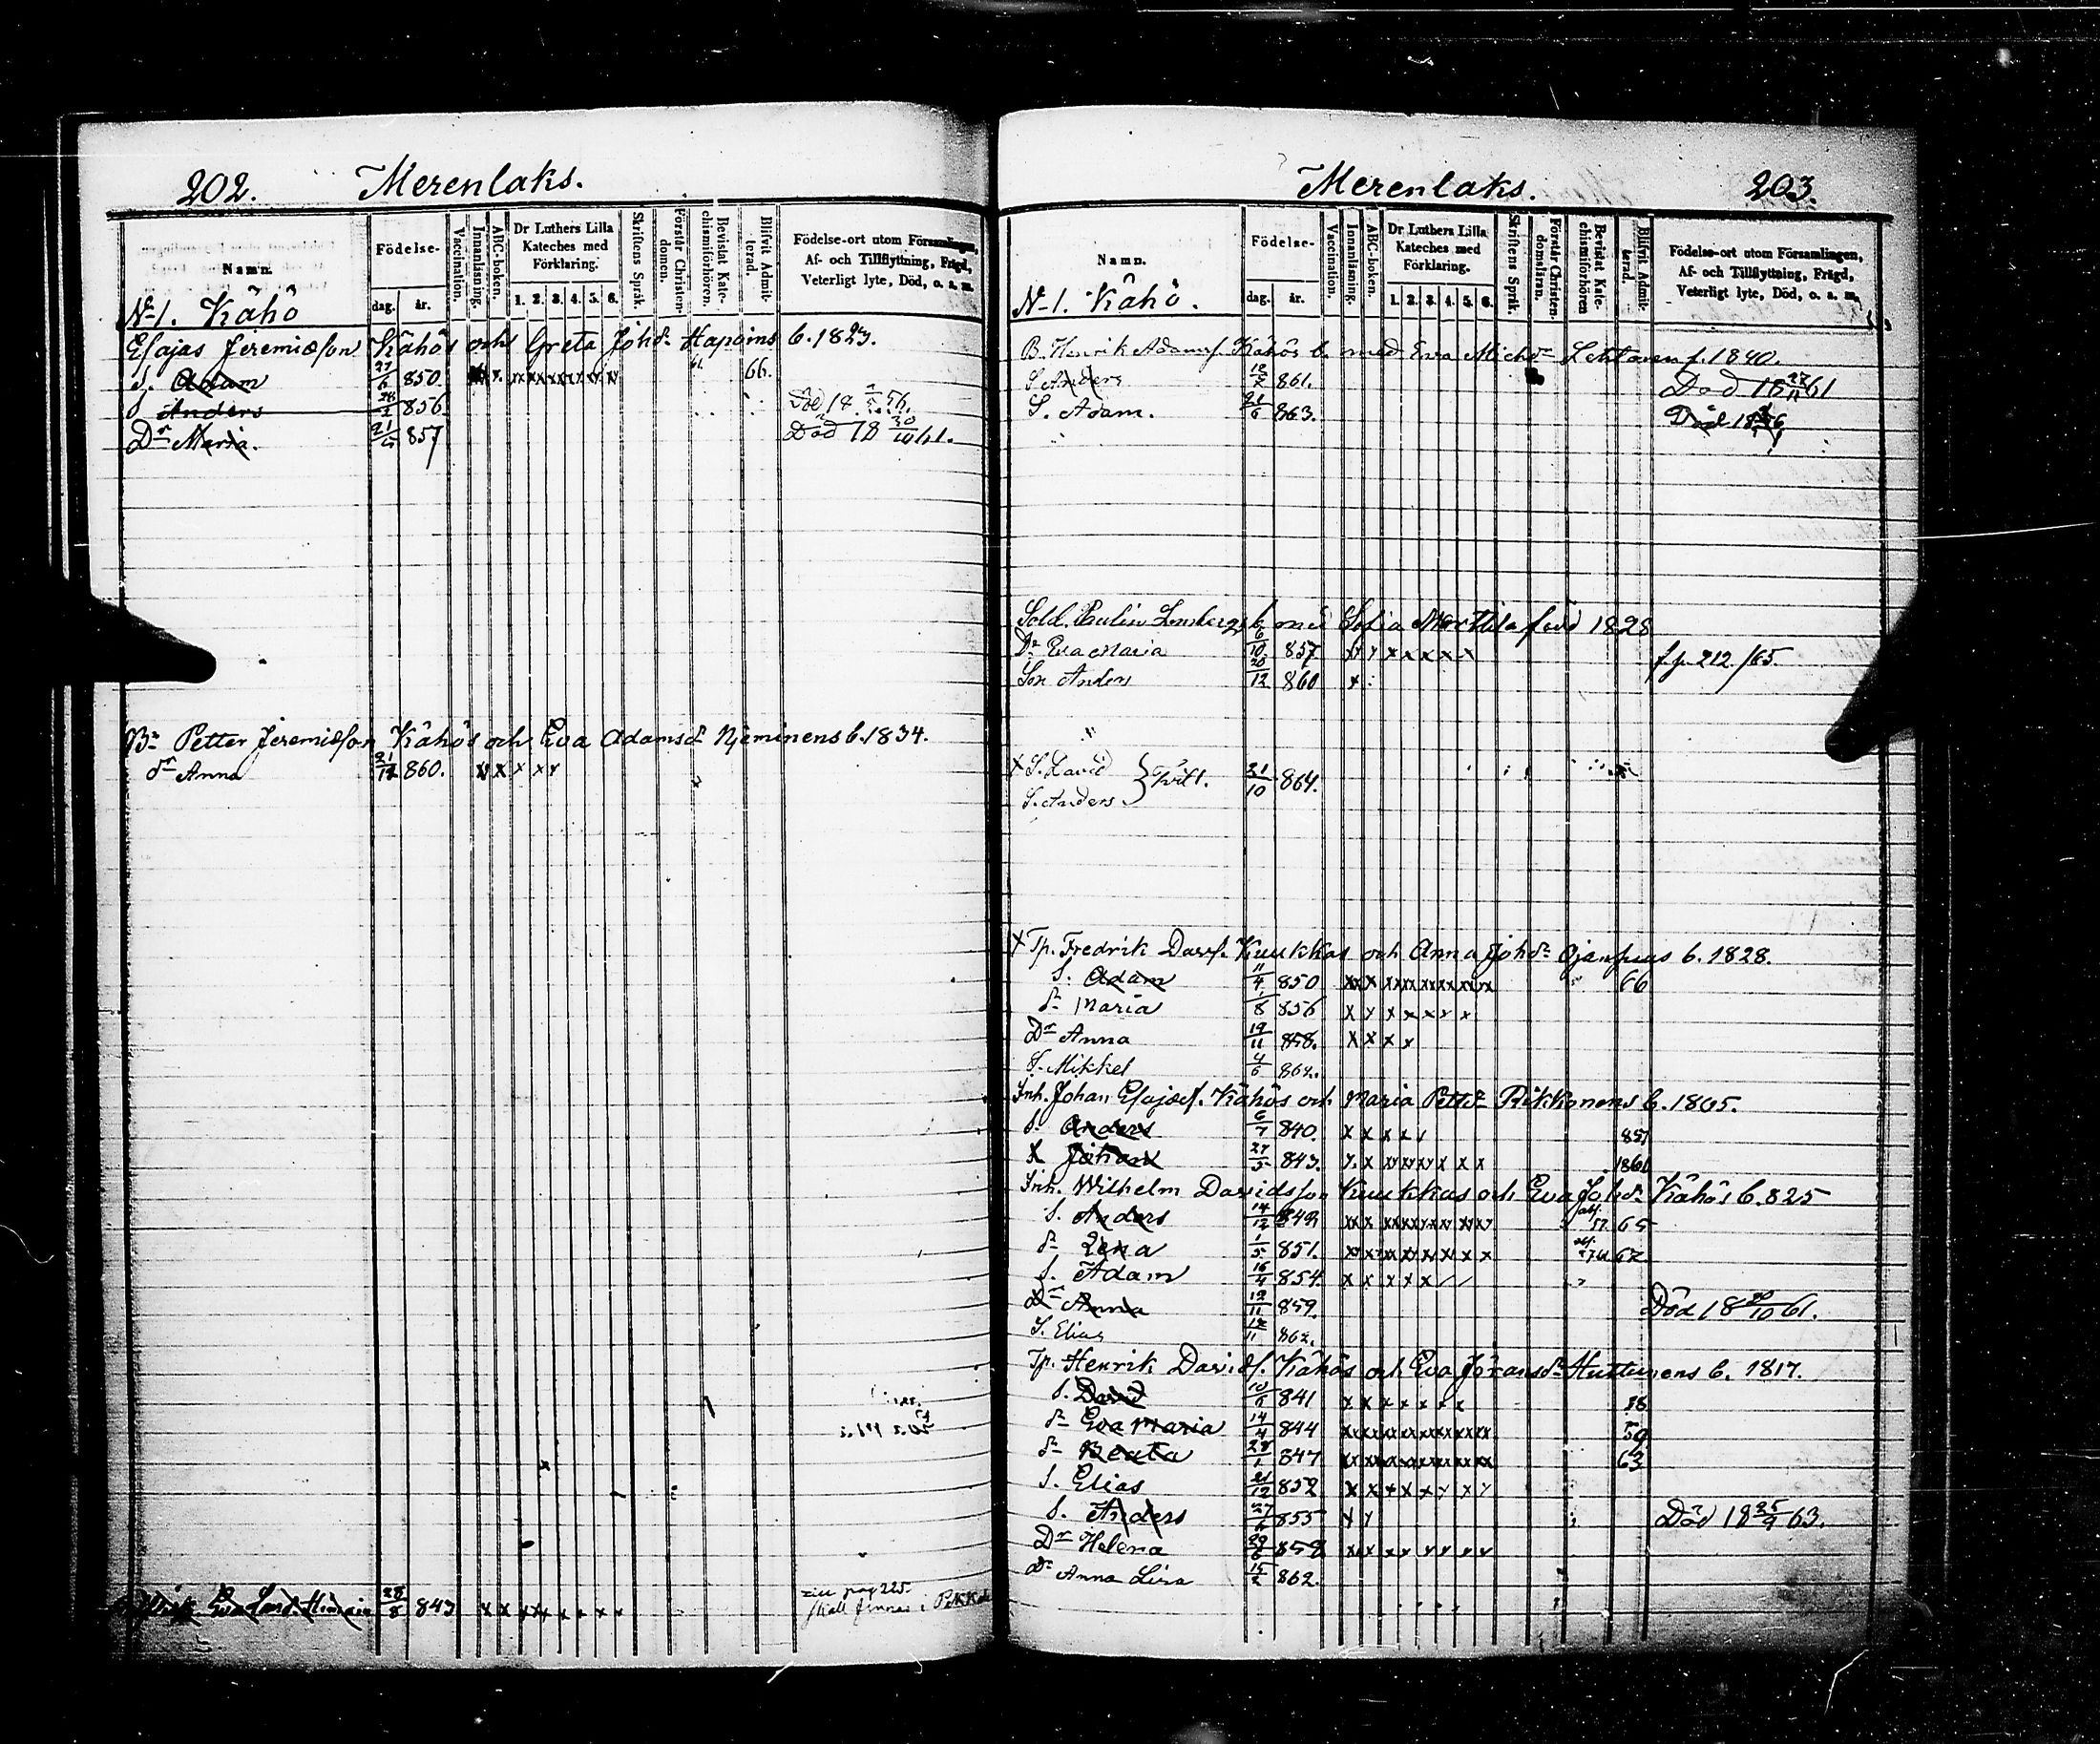 202. Merenlaks.
Namn.
Födelse-
dag. år.
Vaccination.
Innanläsning.
ABC-boken.
Dr Luthers Lilla Kateches med Förklaring.
1. 2. 3. 4. 5. 6.
Skriftens Språk.
Förstår Christen-domen.
Bevistat Kate-chismiförhören.
Blifvit Admit-terad.
Födelse-ort utom Församlingen, Af- och Tillflyttning, Frägd, Veterligt lyte, Död, o. s. m.
No 1. Kähö
Esajas Jeremiæson Kähös och Greta Johdr Haposins b. 1823.
S. Adam 27/6 850. x x xx xx xx xx xx 61. 66.
S Anders 28/2 856 Död 18 56.
Dr Maria. 21/5 857 Död 18 30/10 61.
Br Petter Jeremiæson Kähös och Eva Adamsdr Njeminens b. 1834.
dr Anna 21/12 860. x x x x x
Eva 28/8 843 x x x x x x x x
pag 225.
skall finnas i
Merenlaks. 203.
Namn.
Födelse-
dag. år.
Vaccination.
Innanläsning.
ABC-boken.
Dr Luthers Lilla Kateches med Förklaring.
1. 2. 3. 4. 5. 6.
Skriftens Språk.
Förstår Christen-domsläran.
Bevistat Kate-chismiförhören
Blifvit Admit-terad.
Födelse-ort utom Församlingen, Af- och Tillflyttning, Frägd, Veterligt lyte, Död, o. s. m.
No 1. Kähö.
B. Henrik Adamsf. Kähös b. med Eva Michdr Lehtonen f. 1840.
S Anders 861. Död 18 27/11 61
S. Adam. 21/6 863. Död 18
Sold. Paulin Lonbergs b. med Sofia Marttila född 1828
Dr Eva Maria 6/10 857 x x x x x x x f. p. 212 /65.
Son Anders 20/12 860 x
"
x S. David } Tvill. 21/10 864.
S. Anders
x Tp. Fredrik Davs. Kuukkas och Anna Johdr Ojanpuus b. 1828.
S. Adam 11/4 850 xx x xx xx xx xx xx xx 66
dr Maria 1/8 856 x x x x x x x
Dr Anna 19/11 858. x x x x
S. Mikkel 4/6 862.
Inh. Johan Esajæs. Kähös och Maria Pettdr Rikkonens b. 1805.
S. Anders 6/7 840. x x x x x 857
S. Johan 27/5 843. x x xx xx x x x 1860
Inh. Wilhelm Davidsson Kuukkas och Eva Johdr Kähös b. 825
S. Anders 14/12 849 xx x xx xx xx xx xx 57 65
dr Lena 1/5 851. xx x x xx x x x x 67
S. Adam 16/4 854. x x x x x / /
Dr Anna 12/11 859. Död 18 20/10 61.
S. Elias 12/11 862.
Tp. Henrik Davids. Kähös och Eva Göransdr Huttunens b. 1817.
S. David 10/6 841 x x x x x x x 58
dr Eva Maria 14/4 844 xx xx xx xx xx xx xx 59
dr Beata 28/1 847 xx xx xx xx xx xx xx 63
S. Elias 21/12 852 x x x x x x x x
S. Anders 27/6 855 x x Död 18 25/9 63.
Dr Helena 29/6 858 x x x x x x x x
Dr Anna Lisa 15/2 862.